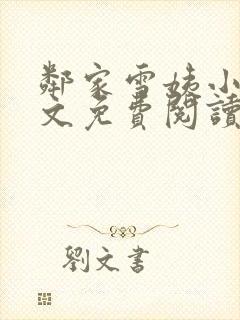 鄰家雪姨小
文免費閱讀
劉文書